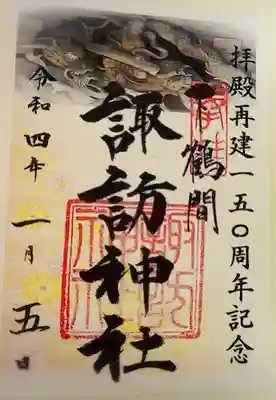 拝殿再建一五〇周年記念
奉拝
下鶴間
諏訪神社
令和四年一月五日
諏訪神社